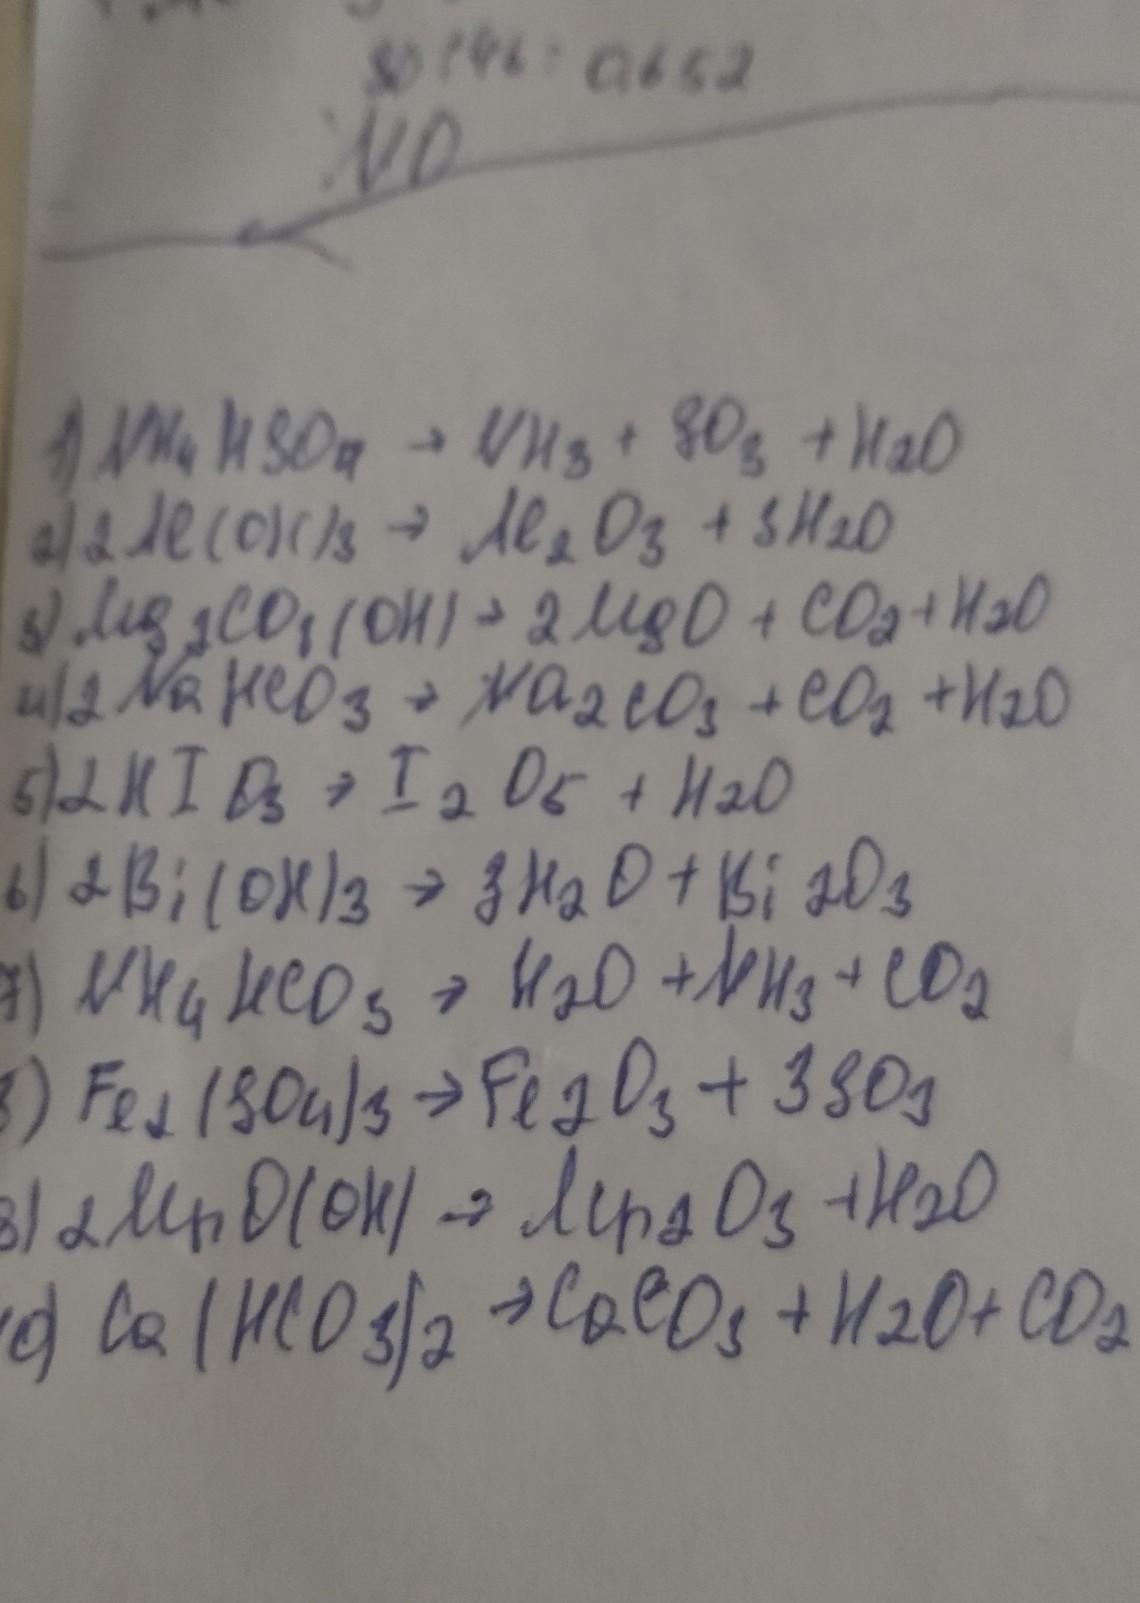 NO
1) NH4HSO4 → NH3 + SO3 + H2O
2) 2Al(OH)3 → Al2O3 + 3H2O
3) Mg2CO3(OH) → 2MgO + CO2 + H2O
4) 2NaHCO3 → Na2CO3 + CO2 + H2O
5) 2HIO3 → I2O5 + H2O
6) 2Bi(OH)3 → 3H2O + Bi2O3
7) NH4HCO3 → H2O + NH3 + CO2
8) Fe2(SO4)3 → Fe2O3 + 3SO3
2MnO(OH) → Mn2O3 + H2O
Ca(HCO3)2 → CaCO3 + H2O + CO2